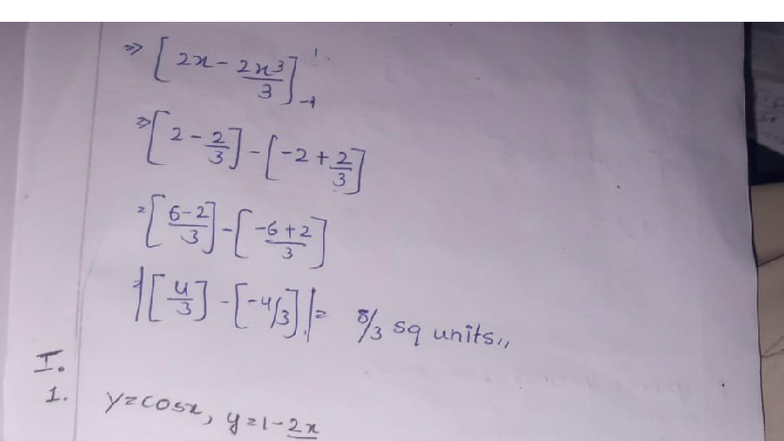 ⇒ [2x - 2x³/3]₋₁¹
⇒ [2 - 2/3] - [-2 + 2/3]
= [6-2/3] - [-6+2/3]
= |[4/3] - [-4/3]| = 8/3 sq units,,
I.
1. y=cosx, y=1-2x